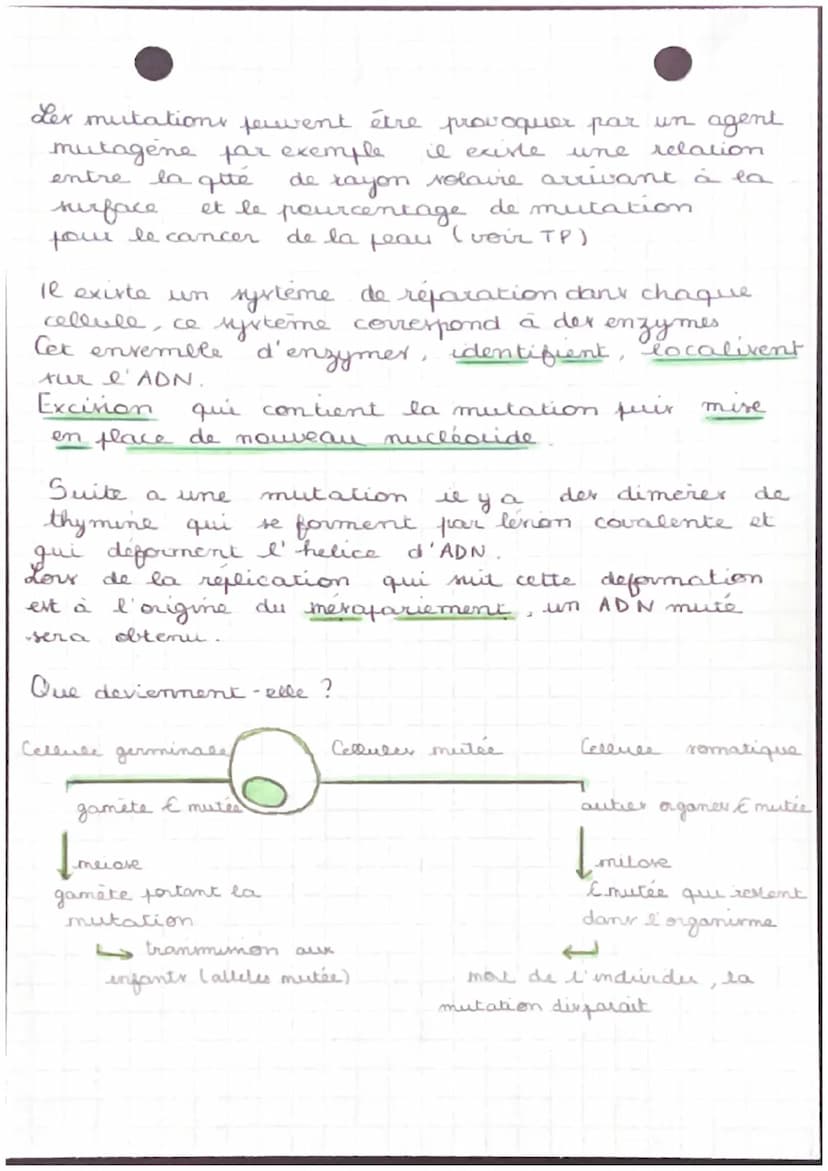 Les mutations peuvent être provoquer par un agent
mutagène par exemple il existe une relation
entre la qtté de rayon solaire arrivant à la
surface et le pourcentage de mutation
pour le cancer de la peau (voir TP)
Il existe un système de réparation dans chaque
cellule, ce système correspond à des enzymes
Cet ensemble d'enzymes, identifient, localisent
sur l'ADN.
Excision qui contient la mutation puis mise
en place de nouveau nucléotide.
Suite a une mutation il y a des dimères de
thymine qui se forment par lésion covalente et
qui déforment l'hélice d'ADN.
Lors de la réplication qui suit cette deformation
est à l'origine du mésapariement, un ADN muté
sera obtenu.
Que deviennent-elle ?
Cellule germinale Cellules mutée Cellule somatique
gamète € mutée autres organes € mutée
meiose mitose
gamète portant la € mutée qui restent
mutation dans l'organisme
↳ transmission aux ↵
enfants (alleles mutée) mort de l'individu, la
mutation disparait